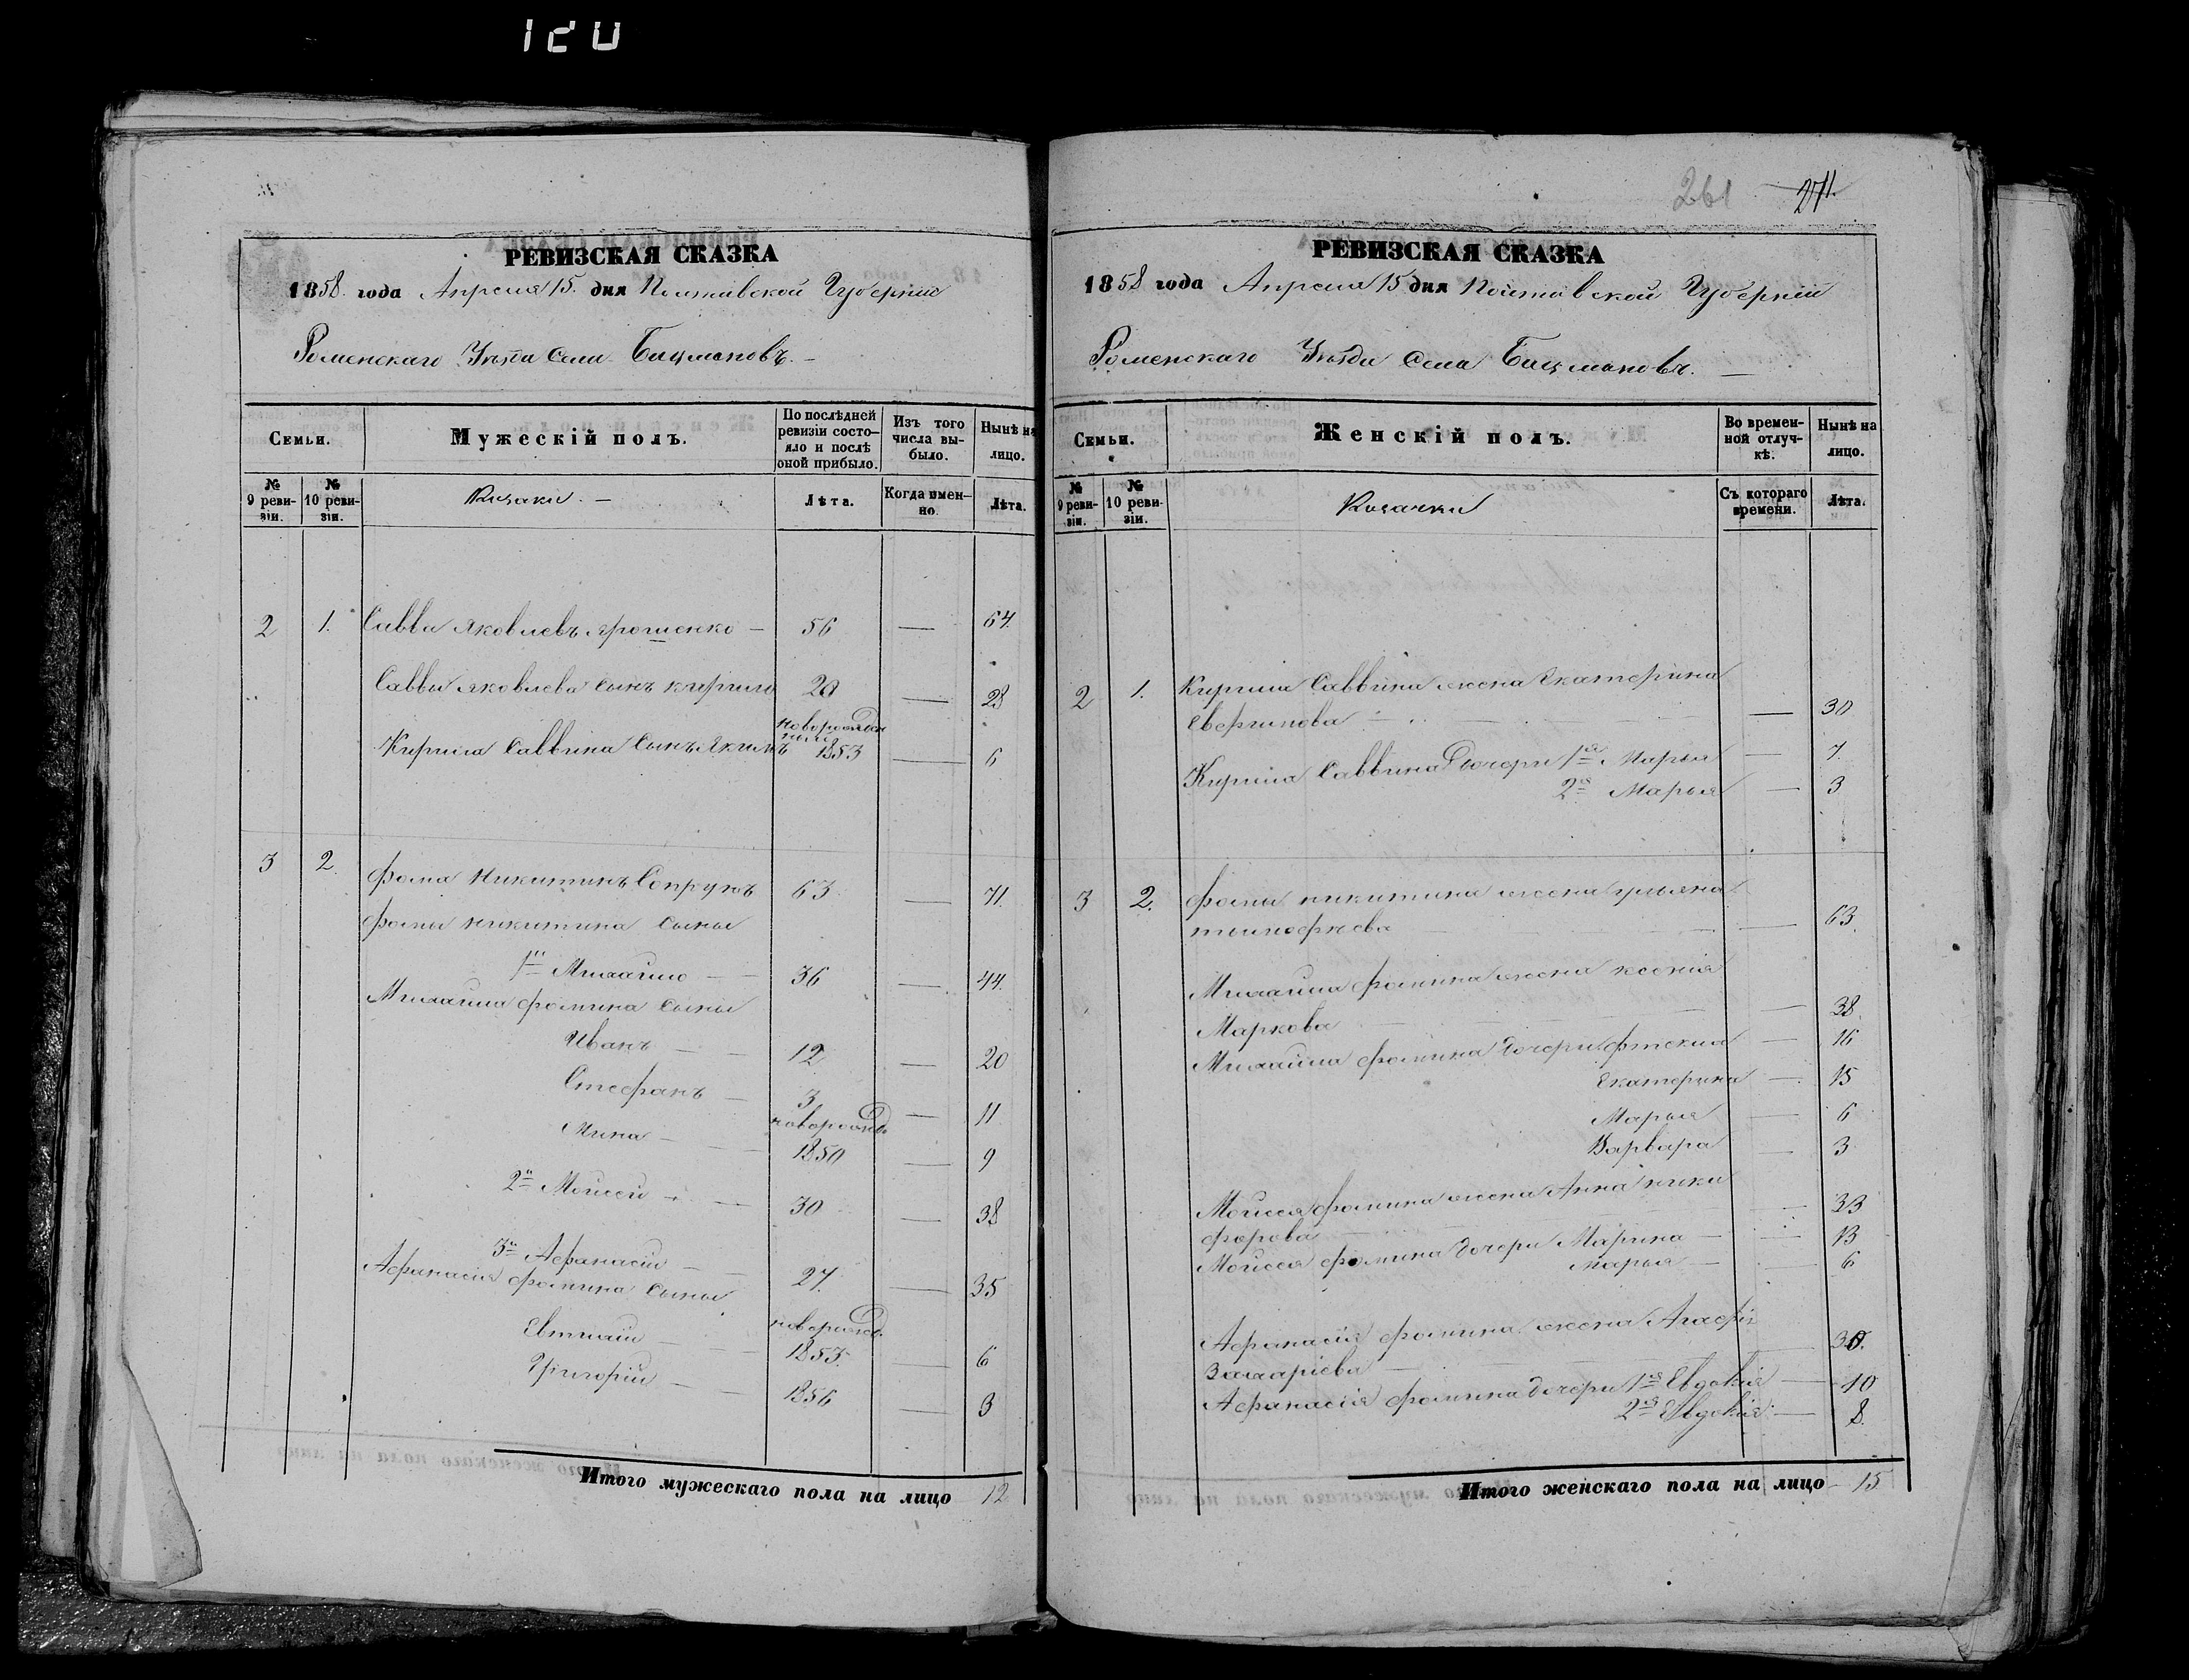 120
РЕВИЗСКАЯ СКАЗКА
1858 года Апреля 15 дня Полтавской Губерніи
Роменскаго Уѣзда Села Бацмановъ.
Семьи.
Мужескій полъ.
По послѣдней ревизіи состо-
яло и послѣ оной прибыло.
Изъ того числа вы-
было.
Нынѣ на лицо.
№ 9 реви-
зіи.
№ 10 реви-
зіи.
Козаки.
Лѣта.
Когда имен-
но.
Лѣта.
2 1. Савва Яковлевъ Ярошенко 56 — 64.
Саввы Яковлева сынъ Кирило 20 — 28
Кирила Саввина сынъ Якимъ новорожден
ный 1853 — 6
3 2. Фома Никитинъ Сопрунъ 63 — 71.
Фомы Никитина сыны
1й Михайло 36 — 44.
Михайла Фомина сыны
Иванъ 12 — 20
Стефанъ 3 — 11
Мина новорожд. 1850 — 9
2й Мойсей 30 — 38
3й Афанасій 27. — 35
Афанасія Фомина сыны
Евтихій новорожд. 1853. — 6
Григорій 1856 — 3
Итого мужескаго пола на лицо 12
261 271.
РЕВИЗСКАЯ СКАЗКА
1858 года Апреля 15 дня Полтавской Губерніи
Роменскаго Уѣзда Села Бацмановъ.
Семьи.
Женскій полъ.
Во времен-
ной отлуч-
кѣ.
Нынѣ на лицо.
№ 9 реви-
зіи.
№ 10 реви-
зіи.
Козачки
Съ котораго времени.
Лѣта.
2 1. Кирила Саввина жена Екатерина
— 30
Кирила Саввина дочери 1я Марья — 7.
2я Марья — 3
3 2. Фомы Никитина жена Ульяна
Тимофеева — 63.
Михайла Фомина жена Ксенія
Маркова — 38.
Михайла Фомина дочери — 16
Екатерина — 15
Марья — 6
Варвара — 3
Мойсея Фомина жена Анна Ники
форова — 33
Мойсея Фомина дочери Марина — 13
Марья — 6
Афанасія Фомина жена Агафі
Захаріева — 30.
Афанасія Фомина дочери 1я Евдокія — 10
2я Евдокія — 8.
Итого женскаго пола на лицо 15